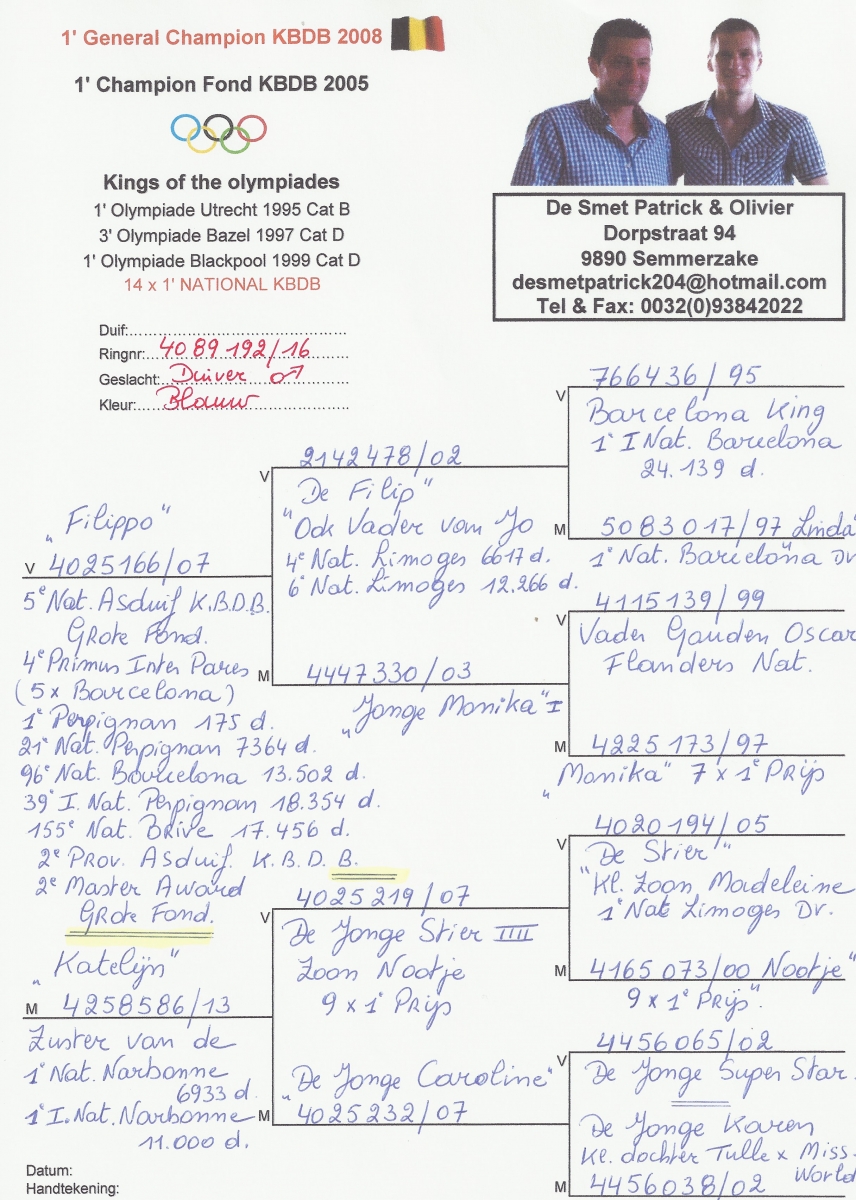 1' General Champion KBDB 2008
1' Champion Fond KBDB 2005
Kings of the olympiades
1' Olympiade Utrecht 1995 Cat B
3' Olympiade Bazel 1997 Cat D
1' Olympiade Blackpool 1999 Cat D
14 x 1' NATIONAL KBDB
De Smet Patrick & Olivier
Dorpstraat 94
9890 Semmerzake
desmetpatrick204@hotmail.com
Tel & Fax: 0032(0)93842022
Duif:
Ringnr: 4089192/16
Geslacht: Duiver ♂
Kleur: Blauw
„Filippo"
V 4025166/07
5e Nat. Asduif K.B.D.B.
Grote Fond.
4e Primus Inter Pares
(5 x Barcelona)
1e Perpignan 175 d.
21e Nat. Perpignan 7364 d.
96e Nat. Barcelona 13.502 d.
39e I. Nat. Perpignan 18.354 d.
155e Nat. Brive 17.456 d.
2e Prov. Asduif. K.B.D.B.
2e Master Award
Grote Fond.
„Katelijn"
M 4258586/13
Zuster van de
1e Nat. Narbonne
6933 d.
1e I. Nat. Narbonne
11.000 d.
V 2142478/02
„De Filip"
Ook Vader van Jo
4e Nat. Limoges 6617 d.
6e Nat. Limoges 12.266 d.
M 4447330/03
„Jonge Monika" I
V 4025219/07
De Jonge Stier IIII
Zoon Nootje
9 x 1e Prijs
„De Jonge Caroline"
M 4025232/07
V 766436/95
Barcelona King
1e I Nat. Barcelona
24.139 d.
M 5083017/97 Linda
1e Nat. Barcelona Dv
V 4115139/99
Vader Gouden Oscar
Flanders Nat.
M 4225173/97
„Monika" 7 x 1e Prijs
V 4020194/05
„De Stier"
Kl. Zoon Madeleine
1e Nat. Limoges Dv.
M 4165073/00 Nootje"
9 x 1e Prijs".
V 4456065/02
De Jonge Super Star.
De Jonge Karen
Kl. dochter Tulle x Miss
World
M 4456038/02
Datum:
Handtekening: